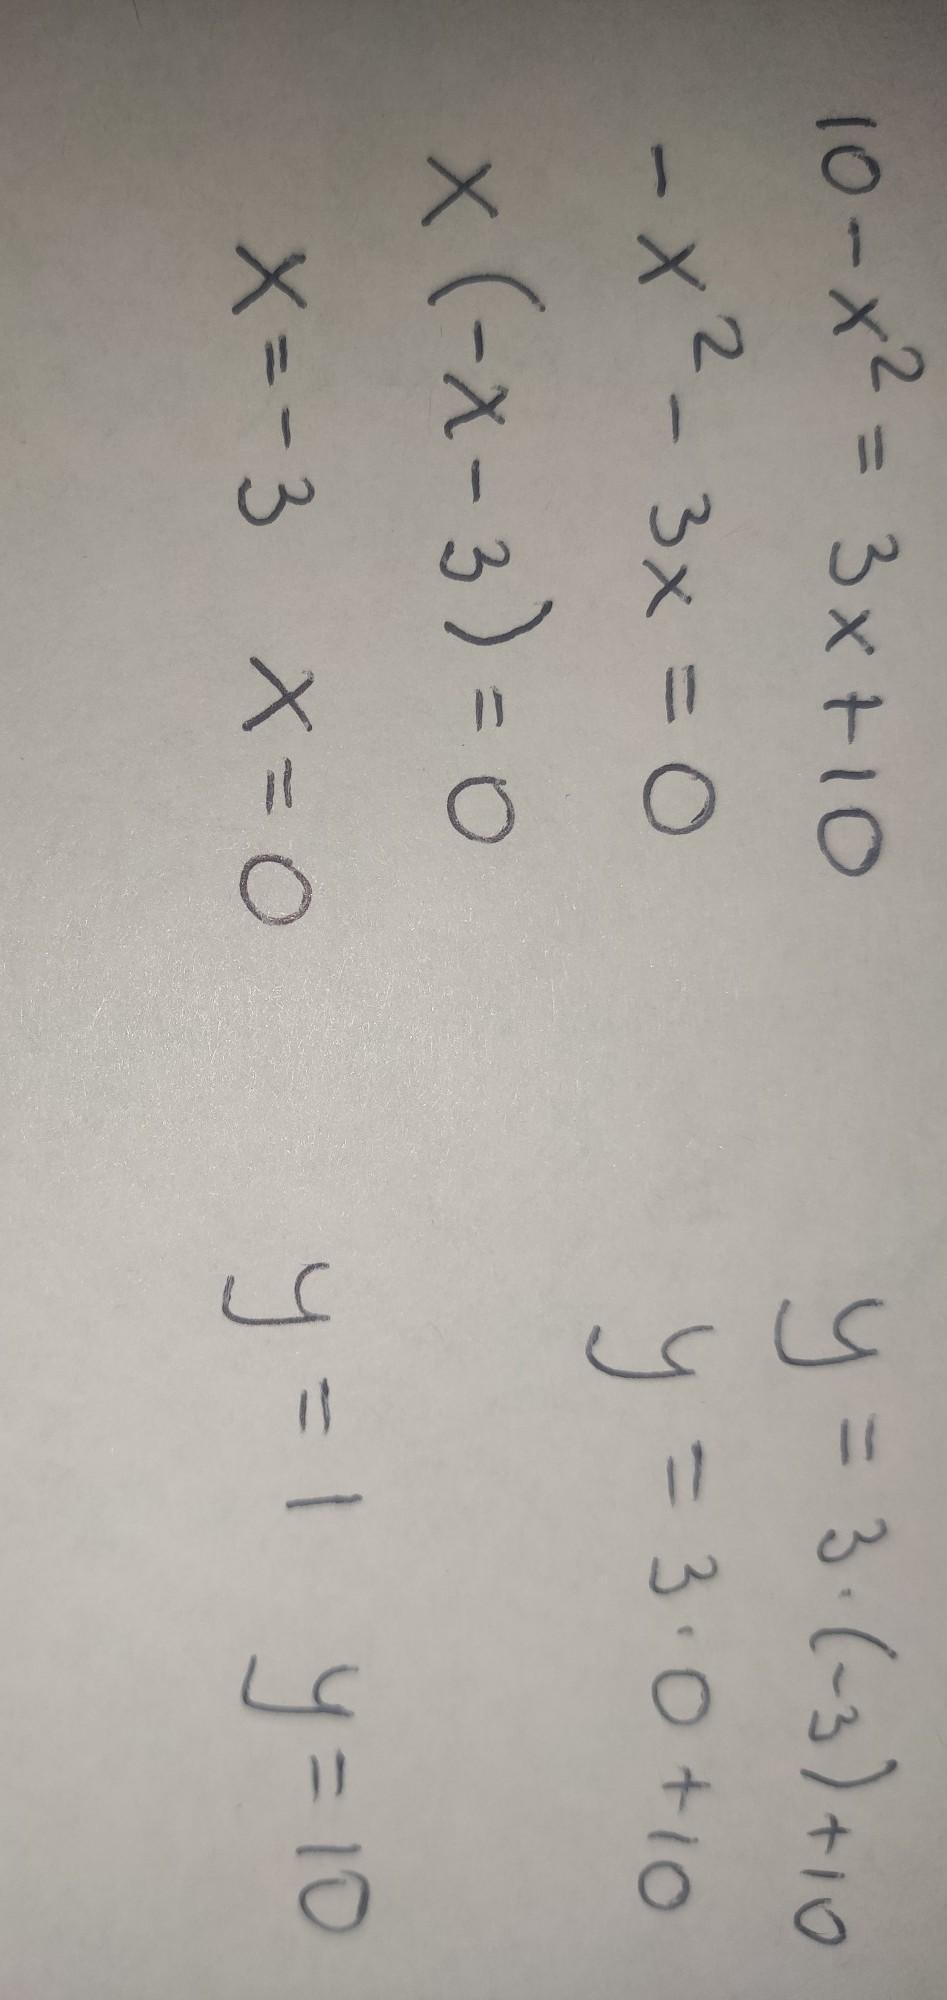 10 - x² = 3x + 10
- x² - 3x = 0
x (-x - 3) = 0
x = - 3 x = 0
y = 3 · (-3) + 10
y = 3 · 0 + 10
y = 1 y = 10